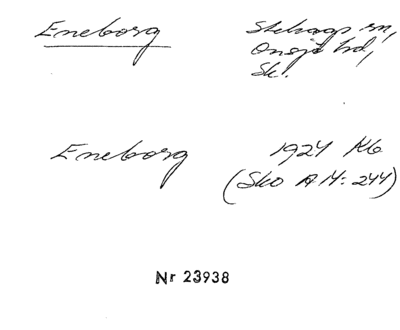 Eneborg
Stehags sn,
Onsjö hd,
Sk.
Eneborg
1924 Kb
(Sko A 14: 244)
Nr 23938